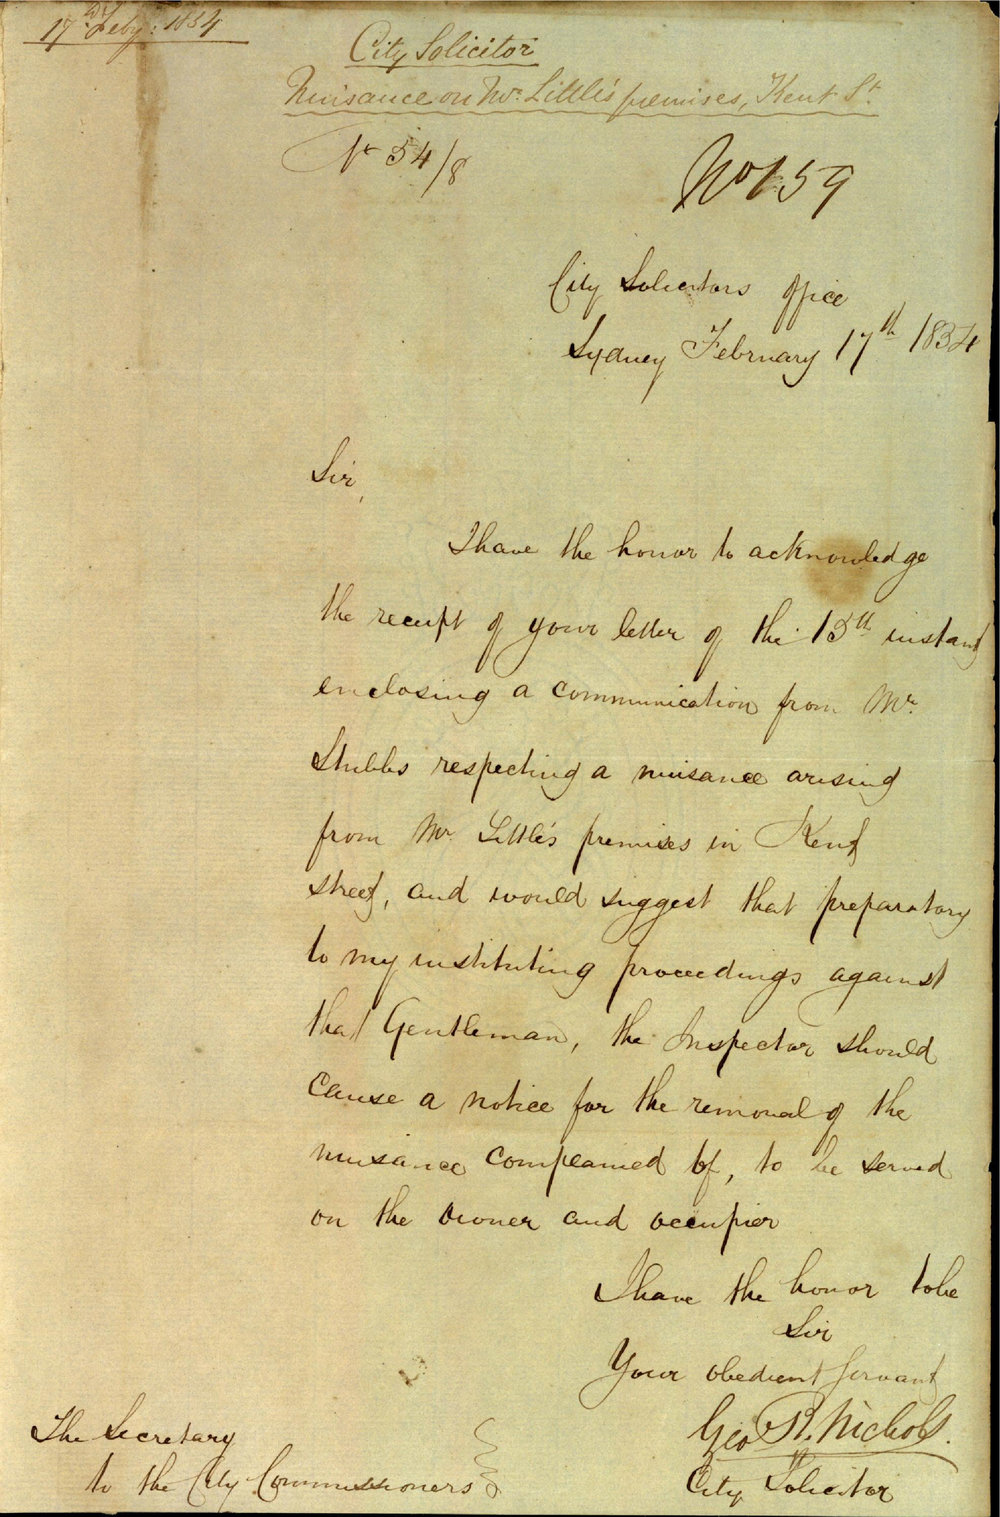 17th Feby: 1854
City Solicitor
Nuisance on Mr. Little's premises, Kent St.
54/8
No 159
City Solicitors office
Sydney February 17th 1854
Sir,
I have the honor to acknowledge
the receipt of your letter of the 15th instant
enclosing a communication from Mr.
Stubbs respecting a nuisance arising
from Mr Little's premises in Kent
street, and would suggest that preparatory
to my instituting proceedings against
that Gentleman, the Inspector should
cause a notice for the removal of the
nuisance complained of, to be served
on the owner and occupier
I have the honor to be
Sir
Your obedient servant
Geo R. Nichols.
City Solicitor
The Secretary
to the City Commissioners